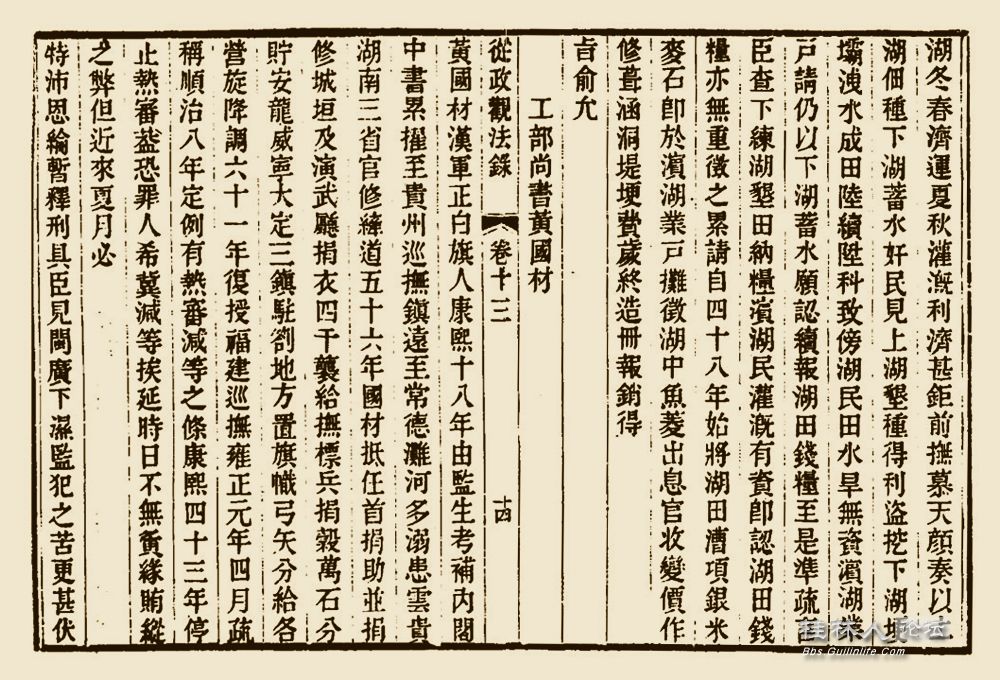 湖冬春濟運夏秋灌漑利濟甚鉅前撫慕天顏奏以上
湖佃種下湖蓄水奸民見上湖墾種得利盜挖下湖埂
壩洩水成田陸續陞科致傍湖民田水旱無資濵湖業
戸請仍以下湖蓄水願認續報湖田錢糧至是準疏言
臣查下練湖墾田納糧濵湖民灌漑有資卽認湖田錢
糧亦無重徵之累請自四十八年始將湖田漕項銀米
麥石卽於濵湖業戸攤徵湖中魚菱出息官收變價作
修葺涵洞堤埂費歲終造冊報銷得
旨俞允
工部尚書黃國材
從政觀法錄 卷十三 十四
黃國材漢軍正白旗人康熙十八年由監生考補内閣
中書累擢至貴州巡撫鎮遠至常德灘河多溺患雲貴
湖南三省官修縴道五十六年國材抵任首捐助並捐
修城垣及演武廳捐衣四千襲給撫標兵捐穀萬石分
貯安龍威寧大定三鎮駐劄地方置旗幟弓矢分給各
營旋降調六十一年復授福建巡撫雍正元年四月疏
稱順治八年定例有熱審減等之條康熙四十三年停
止熱審葢恐罪人希冀減等挨延時日不無夤緣賄縱
之弊但近來夏月必
特沛恩綸暫釋刑具臣見閩廣下濕監犯之苦更甚伏
桂林人论坛
Bbs.Guilinlife.Com